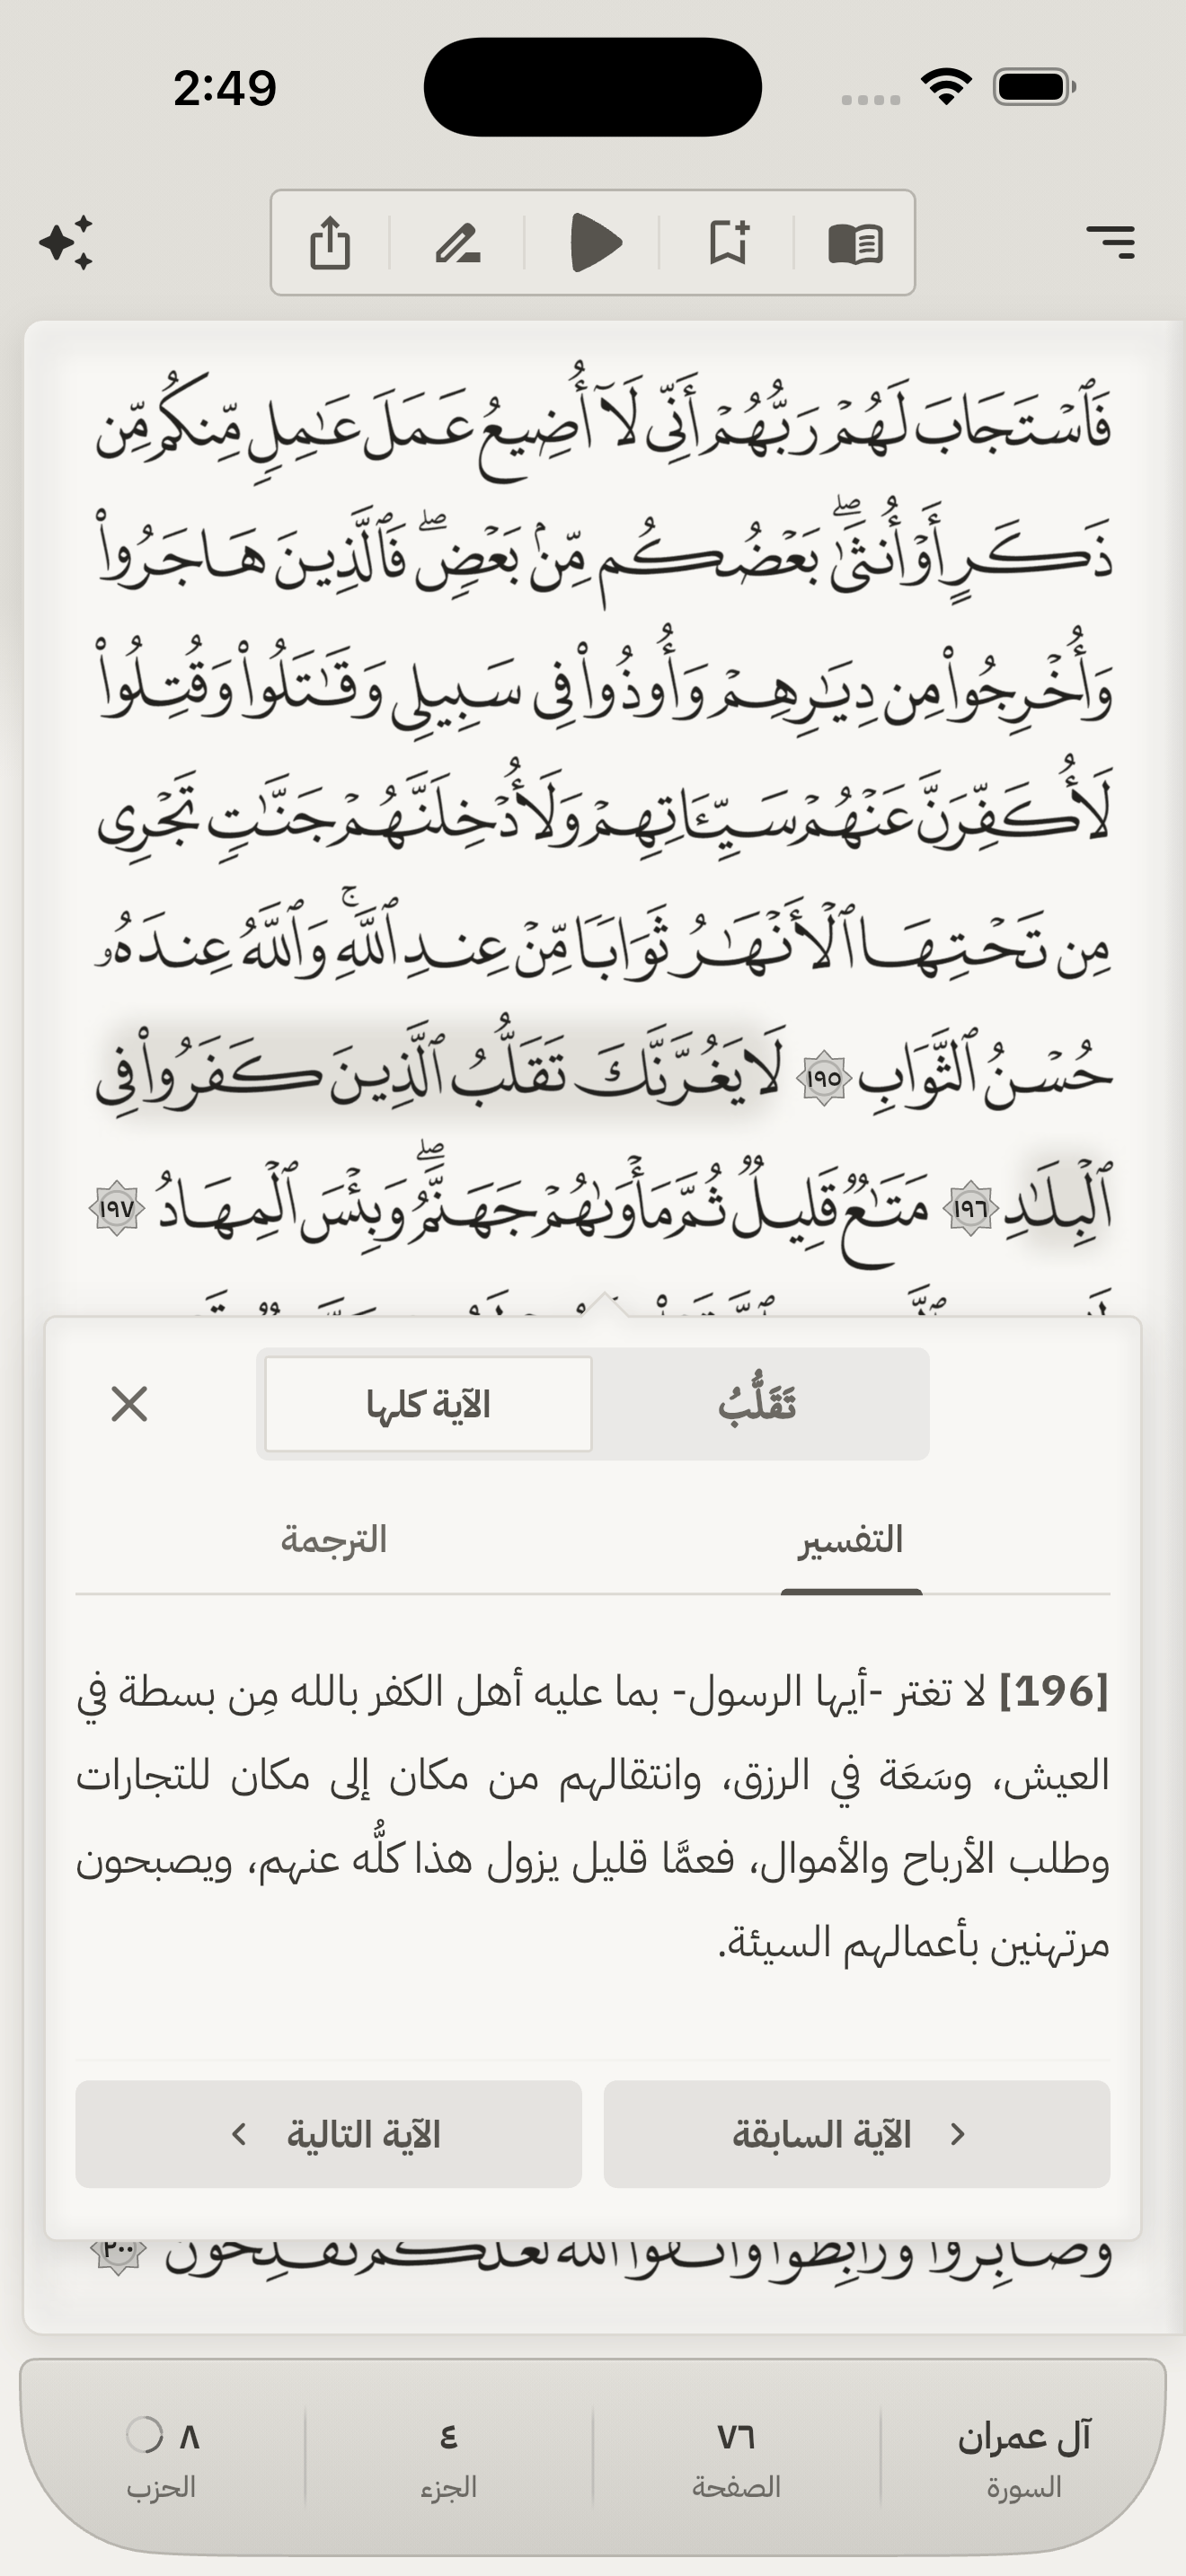 2:49
فَٱسْتَجَابَ لَهُمْ رَبُّهُمْ أَنِّى لَآ أُضِيعُ عَمَلَ عَـٰمِلٍ مِّنكُم مِّن
ذَكَرٍ أَوْ أُنثَىٰ ۖ بَعْضُكُم مِّنۢ بَعْضٍ ۖ فَٱلَّذِينَ هَاجَرُوا۟
وَأُخْرِجُوا۟ مِن دِيَـٰرِهِمْ وَأُوذُوا۟ فِى سَبِيلِى وَقَـٰتَلُوا۟ وَقُتِلُوا۟
لَأُكَفِّرَنَّ عَنْهُمْ سَيِّـَٔاتِهِمْ وَلَأُدْخِلَنَّهُمْ جَنَّـٰتٍ تَجْرِى
مِن تَحْتِهَا ٱلْأَنْهَـٰرُ ثَوَابًا مِّنْ عِندِ ٱللَّهِ ۚ وَٱللَّهُ عِندَهُۥ
حُسْنُ ٱلثَّوَابِ ١٩٥ لَا يَغُرَّنَّكَ تَقَلُّبُ ٱلَّذِينَ كَفَرُوا۟ فِى
ٱلْبِلَـٰدِ ١٩٦ مَتَـٰعٌ قَلِيلٌ ثُمَّ مَأْوَىٰهُمْ جَهَنَّمُ ۖ وَبِئْسَ ٱلْمِهَادُ ١٩٧
تَقَلُّبُ الآية كلها
التفسير الترجمة
[196] لا تغتر -أيها الرسول- بما عليه أهل الكفر بالله مِن بسطة في
العيش، وسَعَة في الرزق، وانتقالهم من مكان إلى مكان للتجارات
وطلب الأرباح والأموال، فعمَّا قليل يزول هذا كلُّه عنهم، ويصبحون
مرتهنين بأعمالهم السيئة.
الآية السابقة الآية التالية
وَصَابِرُوا۟ وَرَابِطُوا۟ وَٱتَّقُوا۟ ٱللَّهَ لَعَلَّكُمْ تُفْلِحُونَ ٢٠٠
آل عمران ٧٦ ٤ ٨
السورة الصفحة الجزء الحزب